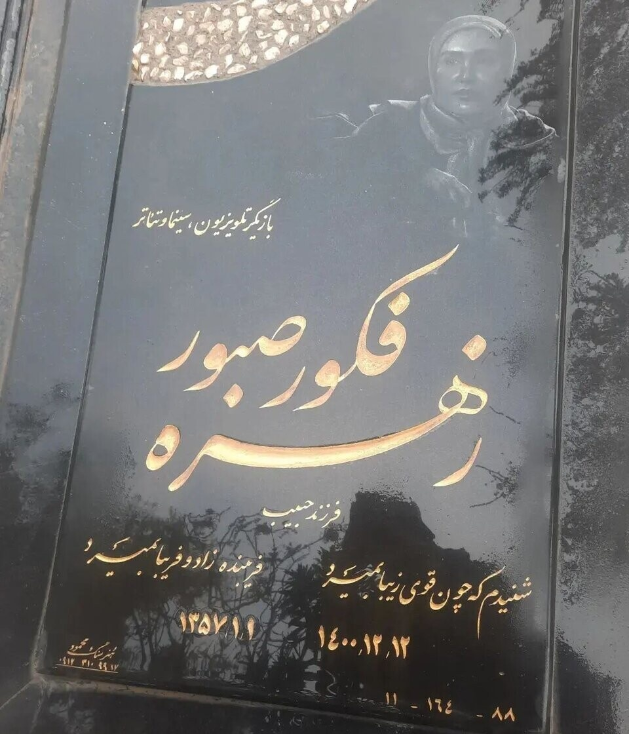 بازیگر تلویزیون، سینما و تئاتر
زهره فکور صبور
فرزند حبیب
شنیدم که چون قوی زیبا بمیرد
فریبنده زاد و فریبا بمیرد
۱۳۵۷,۱,۱
۱۴۰۰,۱۲,۱۲
۸۸ - ۱۶۴ - ۱۱